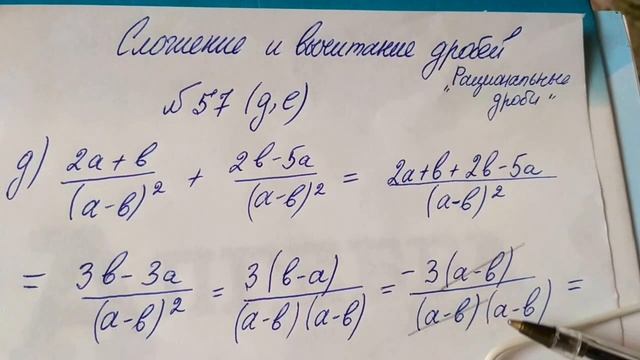 Сложение и вычитание дробей
"Рациональные дроби"
№57 (д, е)
д) (2a+b)/(a-b)² + (2b-5a)/(a-b)² = (2a+b+2b-5a)/(a-b)²
= (3b-3a)/(a-b)² = 3(b-a)/((a-b)(a-b)) = -3(a-b)/((a-b)(a-b)) =